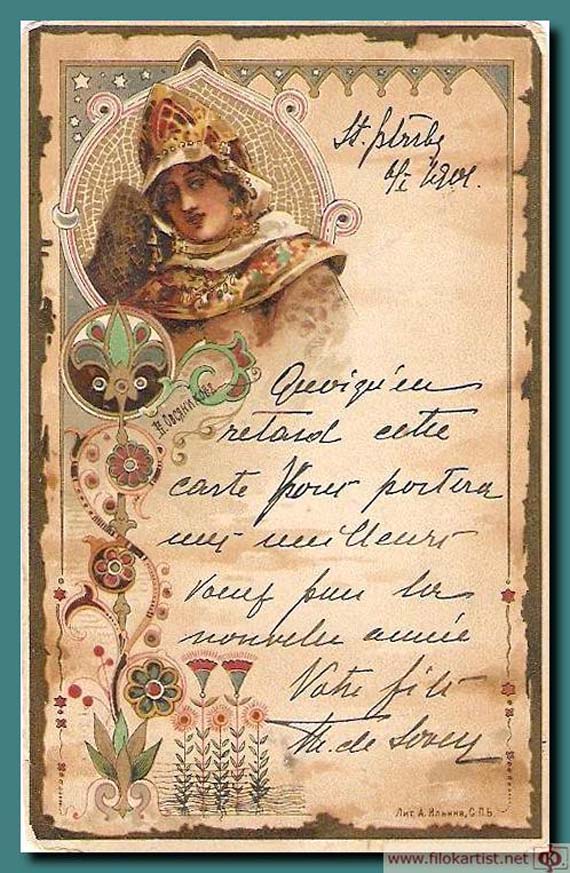 St. Ptrsbg
6/I 1901.
Quoiqu'en
retard cette
carte Vous portera
mes meilleurs
vœux pour la
nouvelle année
Votre fils
Th. de
Лит. А. Ильина, С.П.Б.
www.filokartist.net